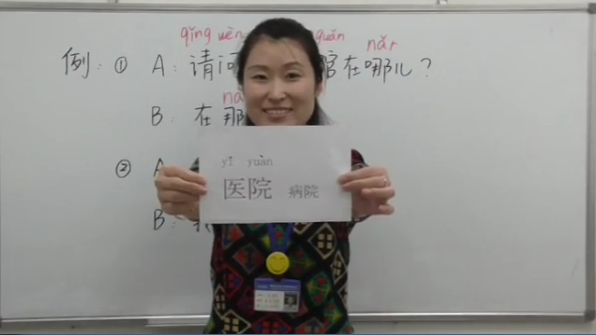 qǐng wèn guǎn nǎr
例：① A：请问 馆在哪儿？
B：在那
② A
B：
yī yuàn
医院 病院